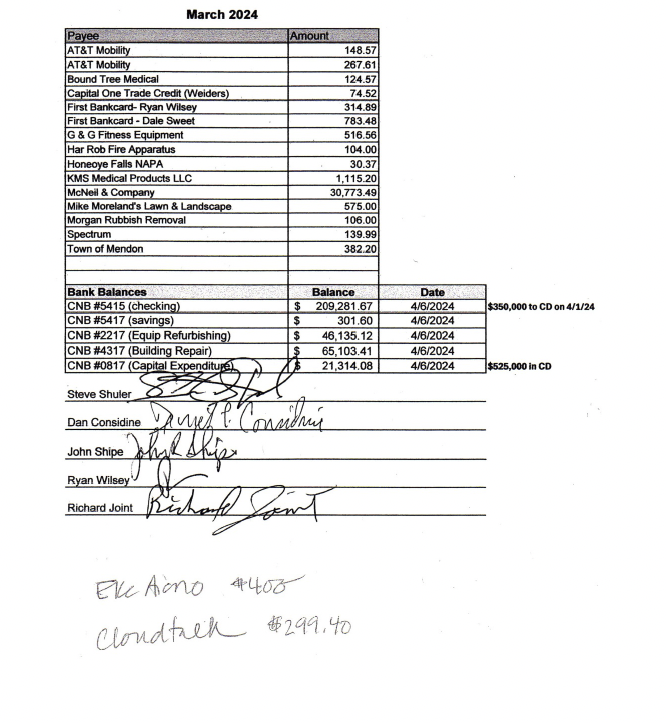 March 2024
Payee Amount
AT&T Mobility 148.57
AT&T Mobility 267.61
Bound Tree Medical 124.57
Capital One Trade Credit (Weiders) 74.52
First Bankcard- Ryan Wilsey 314.89
First Bankcard - Dale Sweet 783.48
G & G Fitness Equipment 516.56
Har Rob Fire Apparatus 104.00
Honeoye Falls NAPA 30.37
KMS Medical Products LLC 1,115.20
McNeil & Company 30,773.49
Mike Moreland's Lawn & Landscape 575.00
Morgan Rubbish Removal 106.00
Spectrum 139.99
Town of Mendon 382.20
Bank Balances Balance Date
CNB #5415 (checking) $ 209,281.67 4/6/2024 $350,000 to CD on 4/1/24
CNB #5417 (savings) $ 301.60 4/6/2024
CNB #2217 (Equip Refurbishing) $ 46,135.12 4/6/2024
CNB #4317 (Building Repair) $ 65,103.41 4/6/2024
CNB #0817 (Capital Expenditure) $ 21,314.08 4/6/2024 $525,000 in CD
Steve Shuler
Dan Considine Daniel P. Considine
John Shipe John R Shipe
Ryan Wilsey
Richard Joint Richard Joint
$400
Cloudtalk $299.40